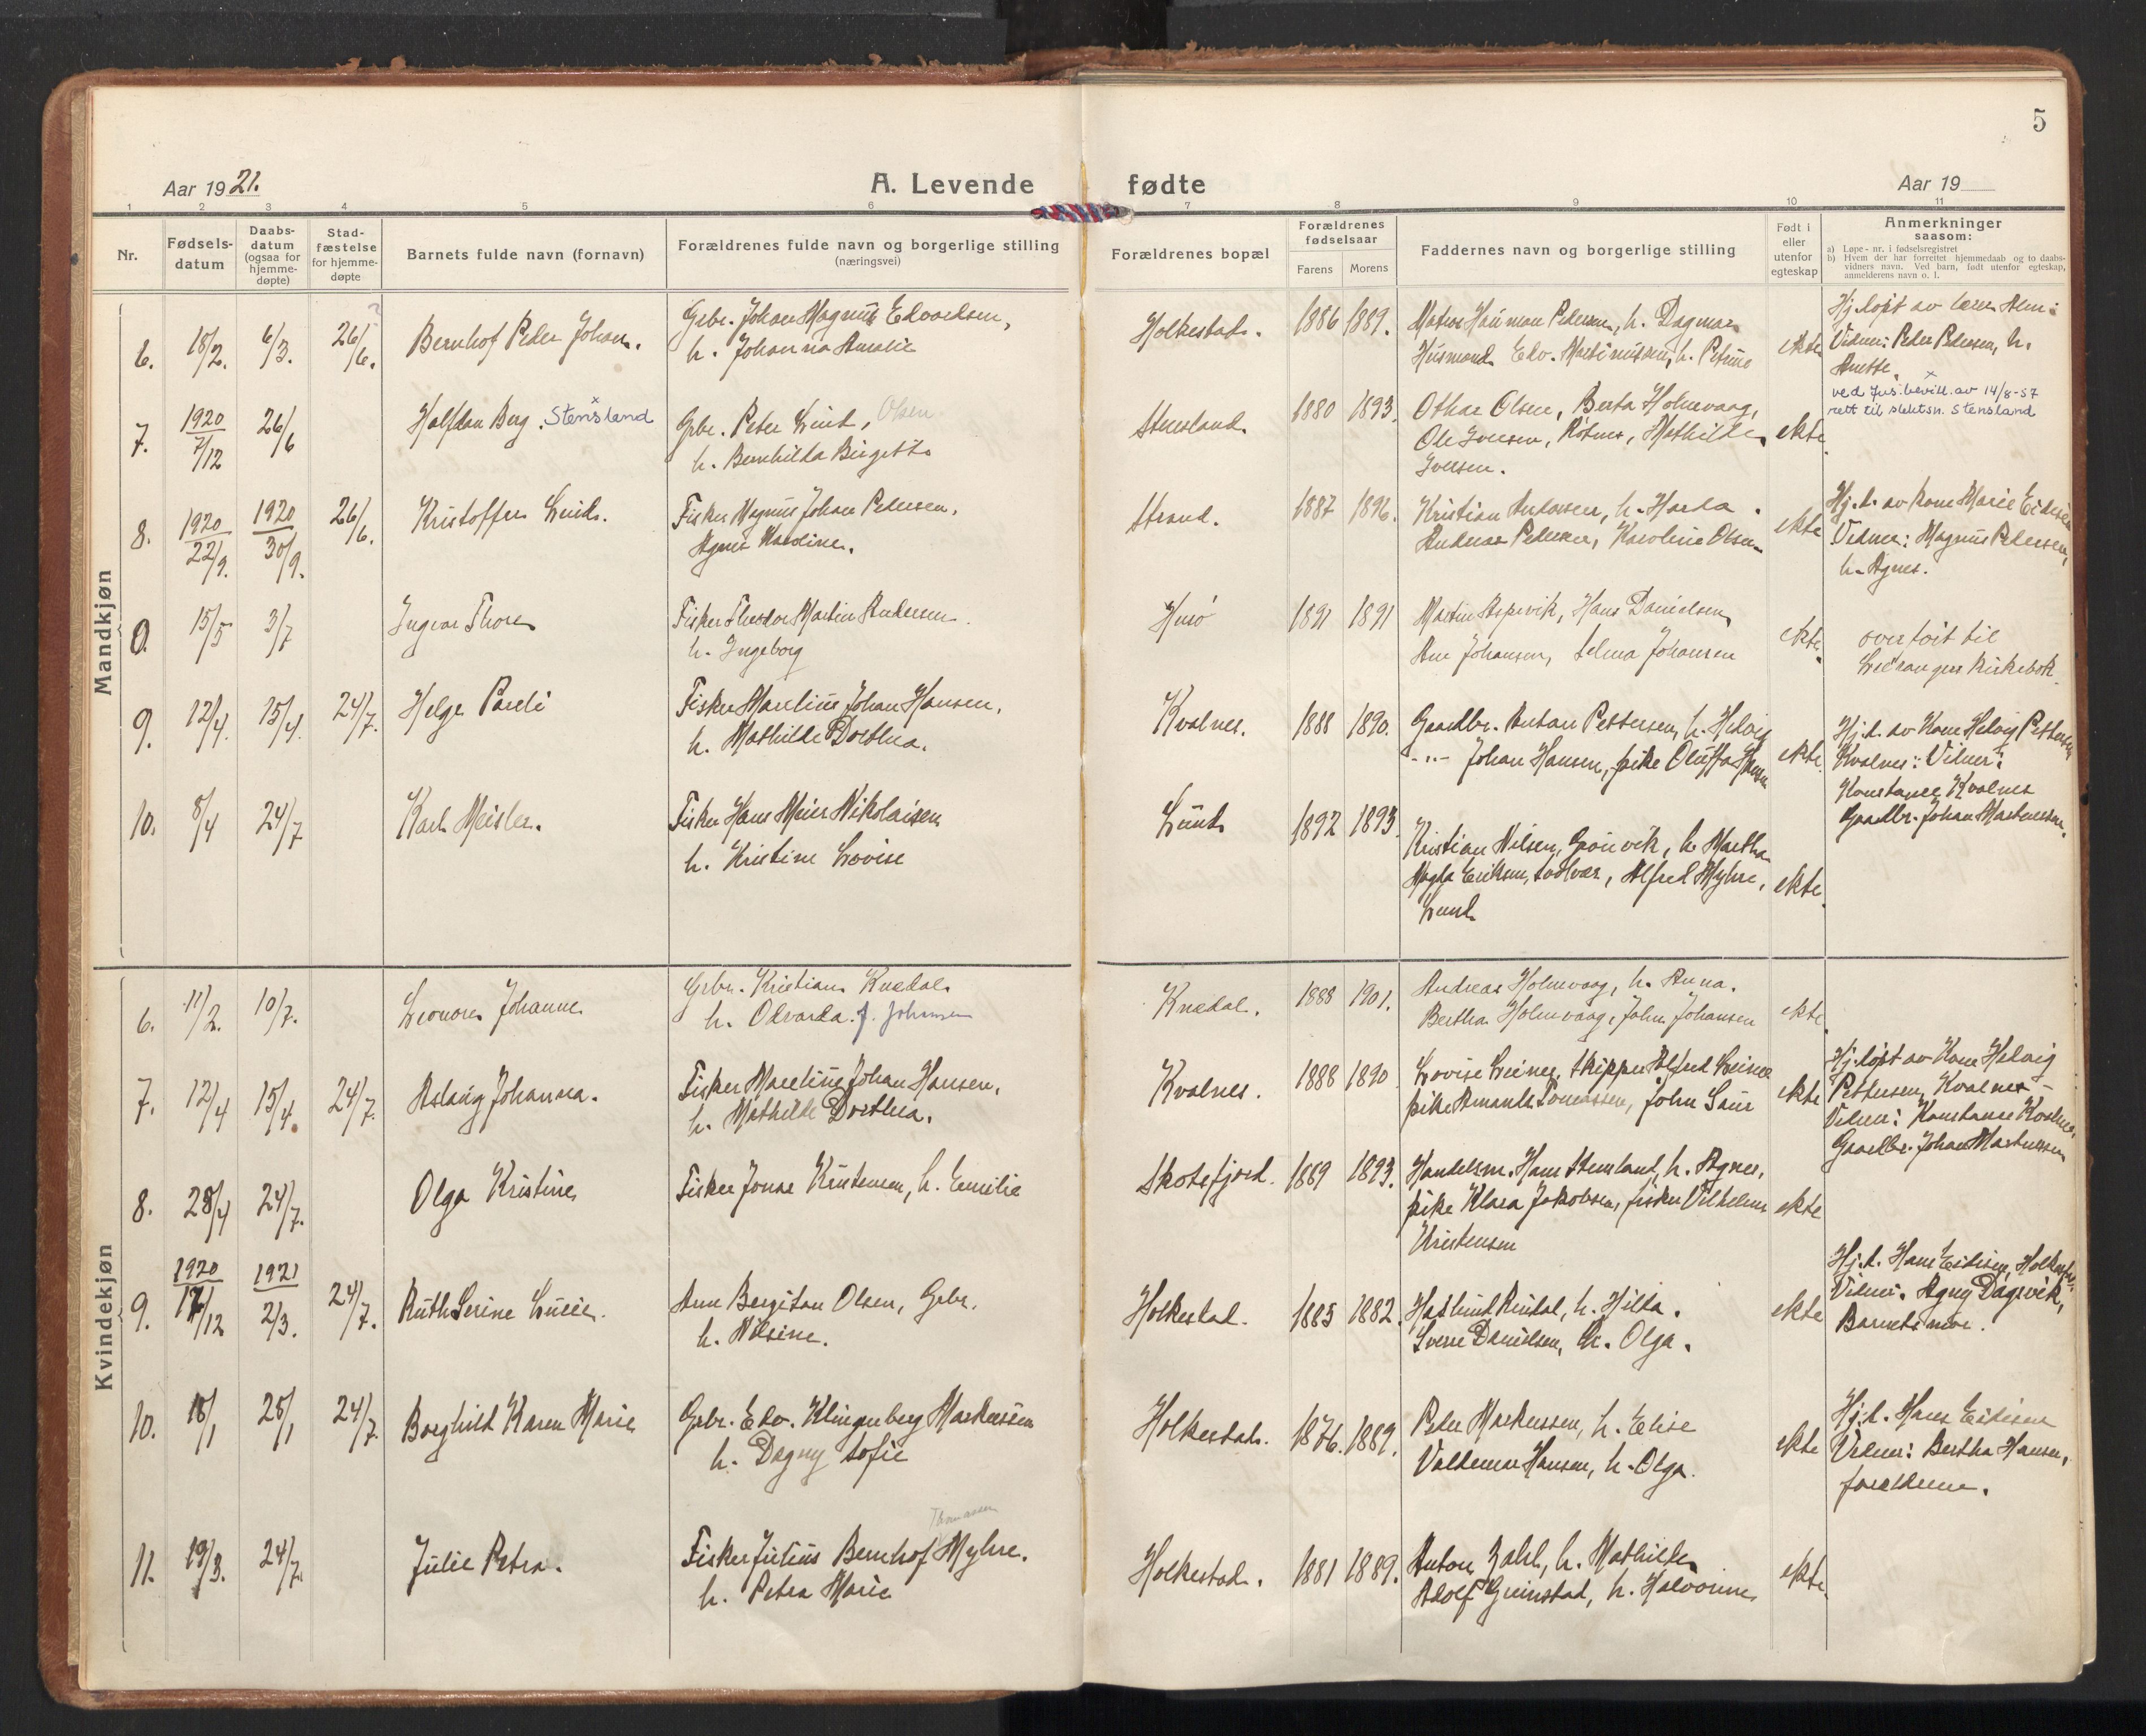 5
Aar 1921.
A. Levende fødte
Aar 19
1 2 3 4 5 6 7 8 9 10 11
Nr.
Fødsels-
datum
Daabs-
datum
(ogsaa for
hjemme-
døpte)
Stad-
fæstelse
for hjemme-
døpte
Barnets fulde navn (fornavn)
Forældrenes fulde navn og borgerlige stilling
(næringsvei)
Forældrenes bopæl
Forældrenes
fødselsaar
Farens Morens
Faddernes navn og borgerlige stilling
Født i
eller
utenfor
egteskap
Anmerkninger
saasom:
a) Løpe-nr. i fødselsregistret
b) Hvem der har forrettet hjemmedaab og to daabs-
vidners navn. Ved barn, født utenfor egteskap,
anmelderens navn o. l.
Mandkjøn
6. 18/2. 6/3. 26/6. Bernhof Peder Johan.
Grbr. Johan Magnus Edvardsen,
h. Johanna Amalie
Holkestad. 1886 1889.
Pedersen, h. Dagmar
Husmand Edv. Martinussen, h. Petrine
ekte
Hj.døpt av lærer
Vidner: Peder Pedersen, h.
Anette.
7. 1920 7/12 26/6 Halfdan Berg. Stensland
Grbr. Peter Lund, Olsen
h. Bernhilda Birgitte
Stensland. 1880 1893.
Othar Olsen, Berta Holmvaag,
Ole Iversen, Mathilde
Iversen.
ekte.
x
ved Jus.bevill. av 14/8-57
rett til slektsn. Stensland
8. 1920 22/9. 1920 30/9. 26/6. Kristoffer Lund.
Fisker Magnus Johan Pedersen.
Agnes Karoline.
Strand. 1887 1896.
Kristian Andersen, h. Harda.
Andreas Pedersen, Karoline Olsen
ekte
Hj.d. av kone Marie Eidisen
Vidner: Magnus Pedersen,
h. Agnes.
0. 15/5 3/7 Ingvar Thore
Fisker Theodor Martin Andersen.
h. Ingeborg
1891 1891
Martin Aspevik, Hans Danielsen,
Ane Johansen, Selma Johansen
ekte.
overført til
Ledranges kirkebok.
9. 12/4. 15/4. 24/7. Helge Pareli
Fisker Marelius Johan Hansen,
h. Mathilde Dorthea.
Kvalnes. 1888 1890.
Gaardbr. Anton Pettersen, h. Helvig
-"- Johan Hansen, pike Oluffa
ekte.
Hj.d. av Kone Helvig Pettersen
Kvalnes: Vidner:
Konstance Kvalnes
Gaardbr. Johan Martinussen.
10. 8/4 24/7 Karl Meisler.
Fisker Hans Meier Nikolaisen
h. Kristine Lovise
Lund 1892 1893.
Kristian Nilsen, Grønvik, h. Martha
Magda Eriksen, Svolvær, Alfred Myhre,
Lund
ekte.
Kvindekjøn
6. 11/2. 10/7. Leonore Johanne
Grbr. Kristian Knedal.
h. Odvarda. f. Johansen
Knedal. 1888 1901.
Andreas Holmvaag, h. Anna.
Bertha Holmvaag, John Johansen
ekte.
7. 12/4 15/4. 24/7. Aslaug Johanna.
Fisker Marelius Johan Hansen,
h. Mathilde Dorthea.
Kvalnes. 1888 1890
Lovise Leines, skipper Alfred Leines
pike Amanda Tomassen, John Saur
ekte
Hj.døpt av Kone Helvig
Pettersen, Kvalnes -
Vidner: Konstanse Kvalnes,
Gaardbr. Johan Martinussen
8. 28/4 24/7. Olga Kristine
Fisker Jonas Kristensen, h. Emilie
Skotsfjord. 1889 1893.
Handelsm. Hans Stensland, h. Agnes,
pike Klara Jakobsen, fisker Vilhelm
Kristensen
ekte
9. 1920 17/12 1921 2/3. 24/7. Ruth Serine Lucie.
Arne Bergitan Olsen, Grbr.
h. Nilsine.
Holkestad. 1885 1882.
Haslund Rindal, h. Hilda.
Sverre Danielsen, h. Olga.
ekte
Hj.d. Hans Eidisen, Holkestad.
Vidner: Agny Dagsvik,
Barnets mor.
10. 18/1 28/1 24/7. Borghild Karen Marie
Grbr. Edv. Klingenberg Markussen
h. Dagny Sofie
Holkestad. 1876. 1889.
Peder Markussen, h. Elise
Valdemar Hansen, h. Olga.
ekte
Hj.d. Hans Eidisen
Vidner: Bertha Hansen,
foreldrene.
11. 19/3. 24/7. Julie Petra.
Thomassen
Fisker Julius Bernhof Myhre.
h. Petra Marie
Holkestad. 1881 1889.
Anton Zahl, h. Mathilde
Adolf Grimstad, h. Halvorine
ekte.